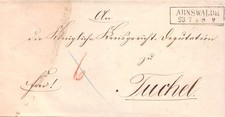 ARNSWALDE
23 7
An
die Königliche Kreisgericht. Deputation
zu
Tuchel